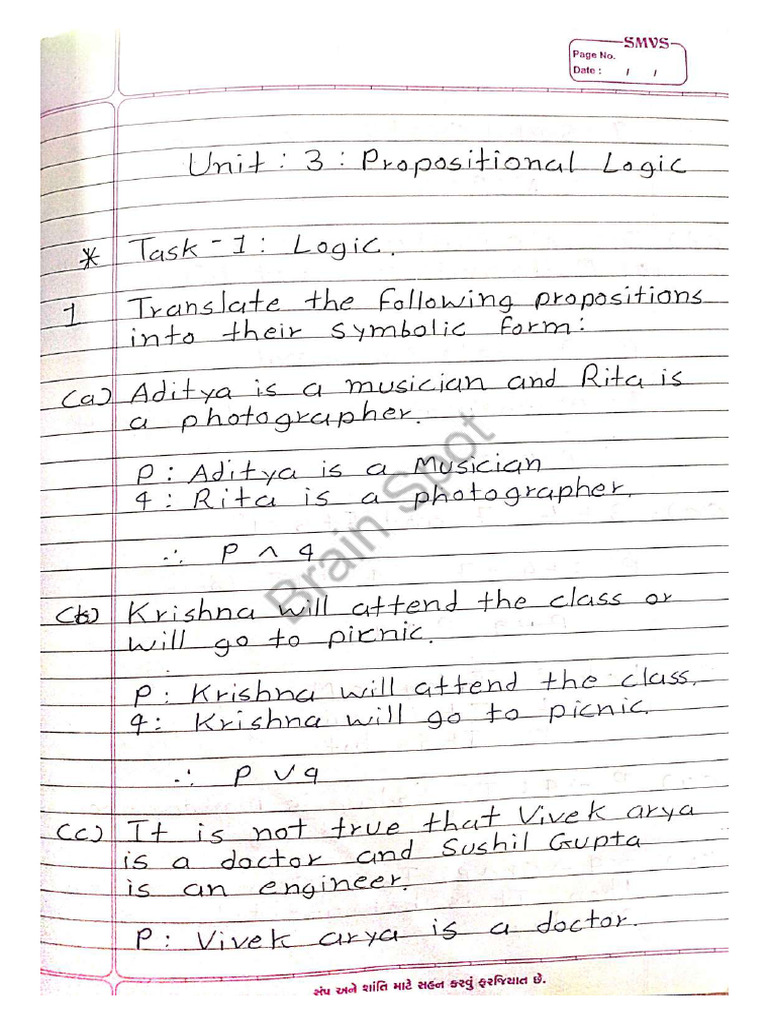 SMVS
Page No.
Date : / /
Unit : 3 : Propositional Logic
* Task - 1 : Logic.
1 Translate the following propositions
into their symbolic form:
(a) Aditya is a musician and Rita is
a photographer.
P : Aditya is a Musician
q : Rita is a photographer.
∴ P ∧ q
(b) Krishna will attend the class or
will go to picnic.
P : Krishna will attend the class.
q : Krishna will go to picnic.
∴ P ∨ q
(c) It is not true that Vivek arya
is a doctor and Sushil Gupta
is an engineer.
P : Vivek arya is a doctor.
સંપ અને શાંતિ માટે સહન કરવું ફરજિયાત છે.
Brain Spot